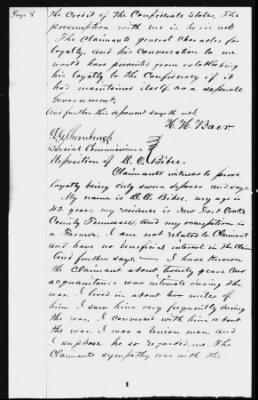 Page 8
the Credit of the Confederate State, The
presumption with me is he is not
The Claimants general Character for
loyalty, and his Conversation to me
would have prevented from establishing
his loyalty to the Confederacy if it
had maintained itself as a seperate
Government.
And further this deponent sayeth not
H. H. Baer
Special Commissioner
Deposition of
Claimants witness to prove
loyalty being duly sworn deposes and says
My name is my age is
42 years my residence is
County Tennessee, and my occupation is
a Farmer. I am not related to Claimant
and have no beneficial interest in the Claim
And further says — I have known
the Claimant about twenty years Our
acquaintance was intimate during the
war. I lived in about two miles of
him I saw him very frequently during
the war. I conversed with him about
the war. I was a Union man and
I suppose he so regarded me The
Claimants sympathy was with the